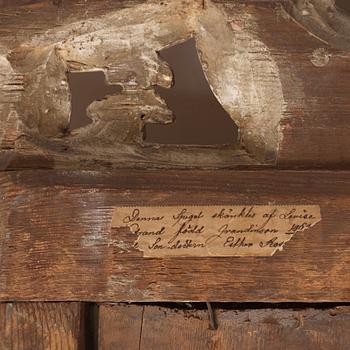 Denna Spegel skänktes af Lovise
Brand född Svandinson 195
Son dottern Esther